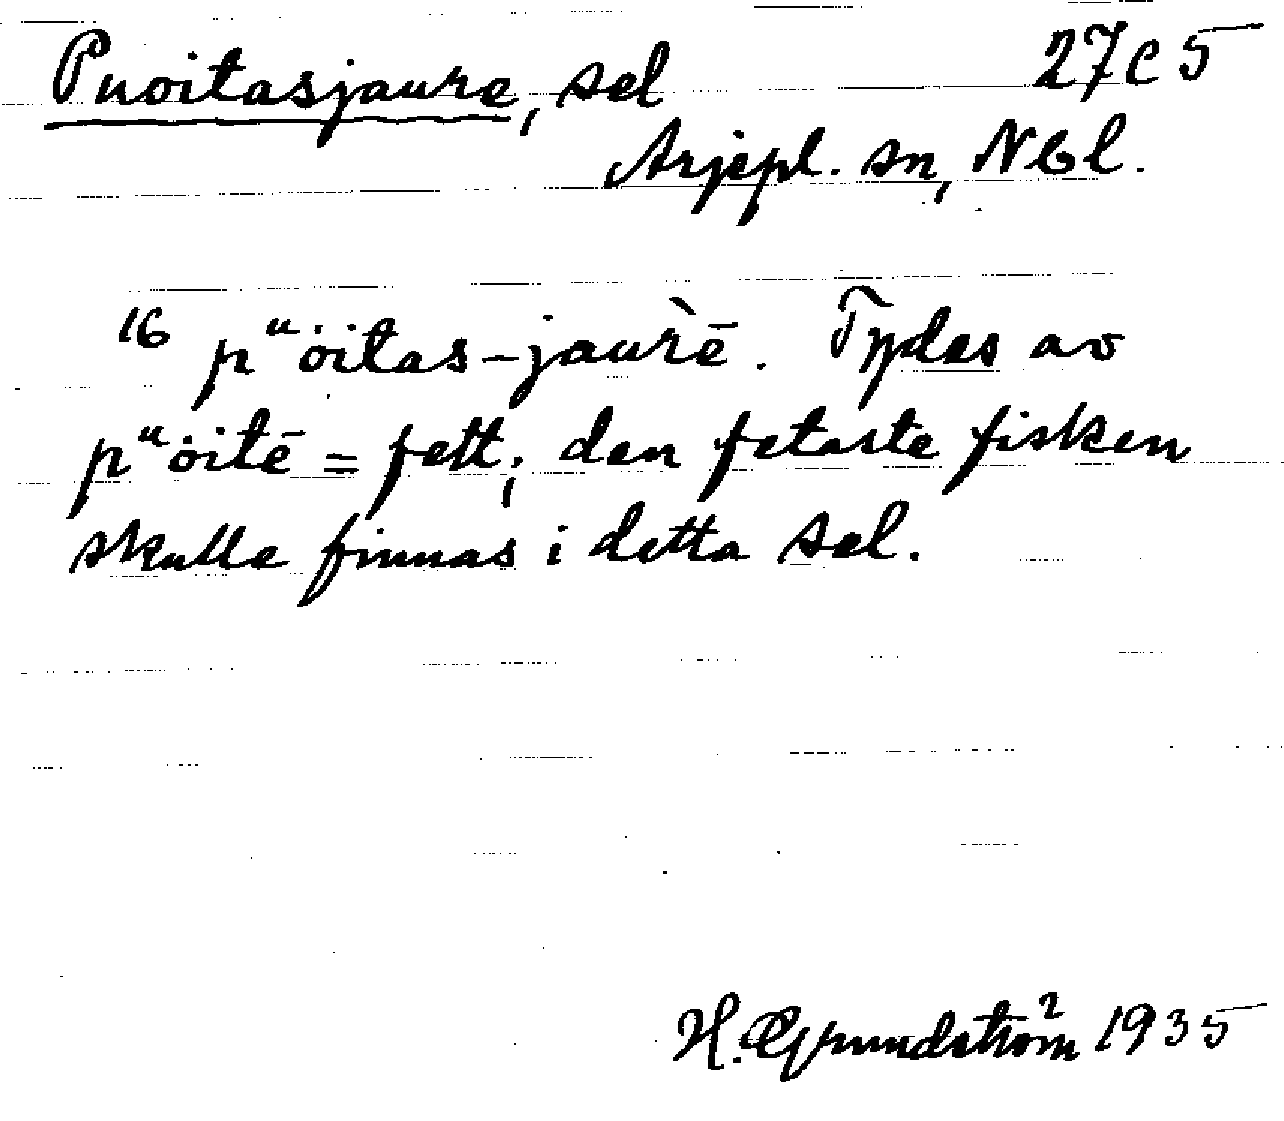 Puoitasjaure, sel 27C5
Arjepl. sn, Nbl.
16 pᵘȯitas-jaurḕ. Tydes av
pᵘȯitē = fett; den fetaste fisken
skulle finnas i detta sel.
H. Grundström 1935